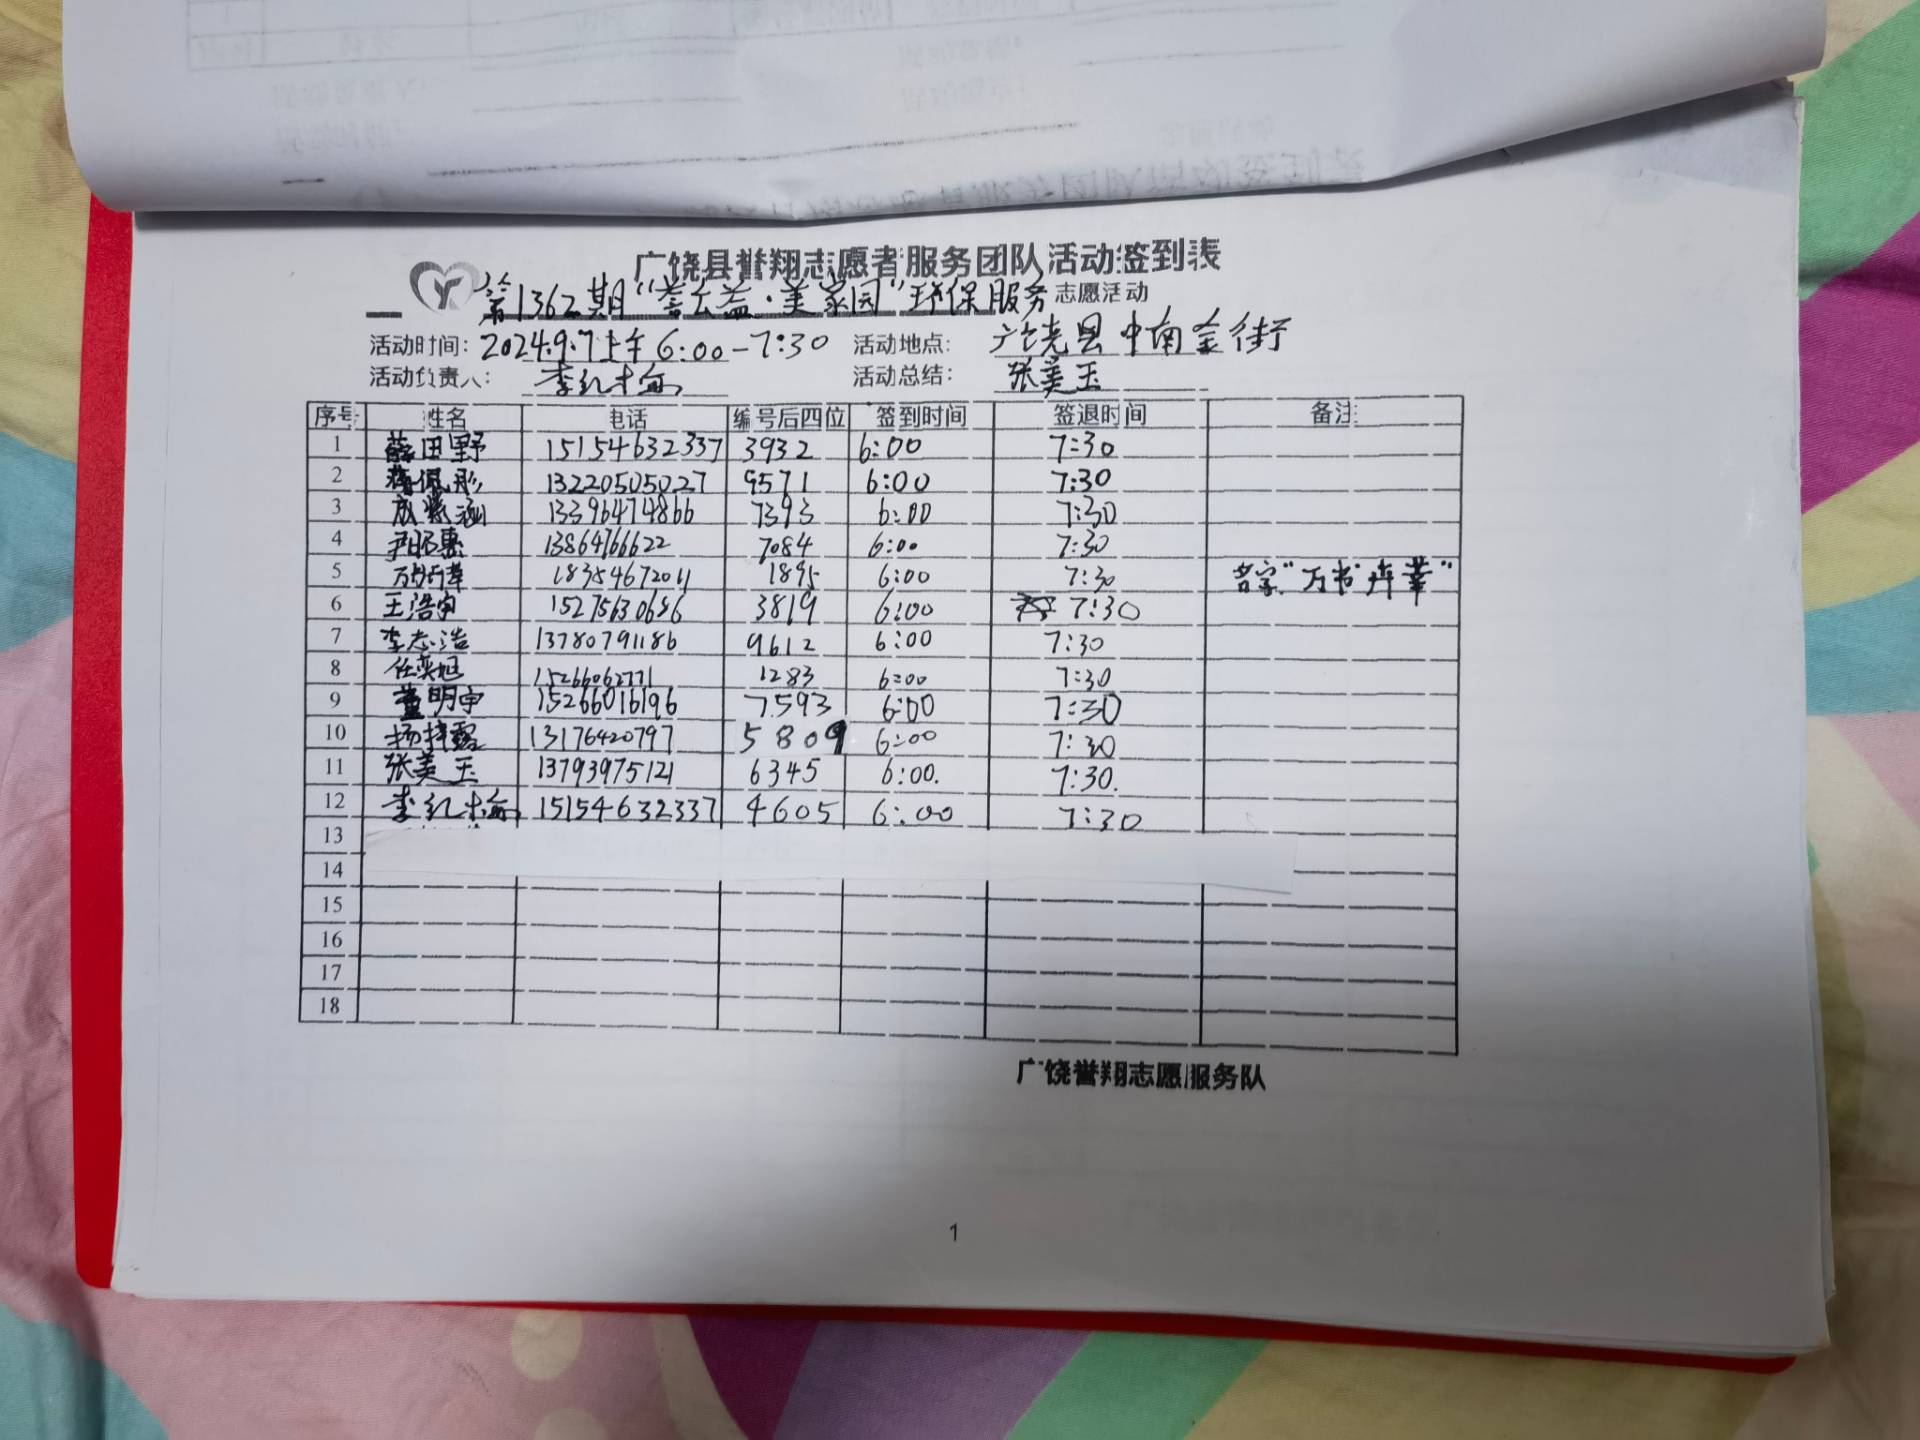 广饶县誉翔志愿者服务团队活动签到表
第1362期“善公益·美家园”环保服务 志愿活动
活动时间：2024.9.7上午6:00-7:30 活动地点：广饶县中南金街
活动负责人：李红梅 活动总结：张美玉
序号 姓名 电话 编号后四位 签到时间 签退时间 备注
1 薛田野 15154632337 3932 6:00 7:30
2 蒋佩彤 13220505027 9571 6:00 7:30
3 成紫涵 13396474866 7393 6:00 7:30
4 尹昭惠 13864766622 7084 6:00 7:30
5 18354672011 1895 6:00 7:30 名字“万书卉苹”
6 王浩宇 15275630686 3819 6:00 7:30
7 李志浩 13780791186 9612 6:00 7:30
8 任奕旭 15266062771 1283 6:00 7:30
9 董明宇 15266016196 7593 6:00 7:30
10 杨梓露 13176420797 5809 6:00 7:30
11 张美玉 13793975121 6345 6:00. 7:30.
12 李红梅 15154632337 4605 6:00 7:30
13
14
15
16
17
18
广饶誉翔志愿服务队
1